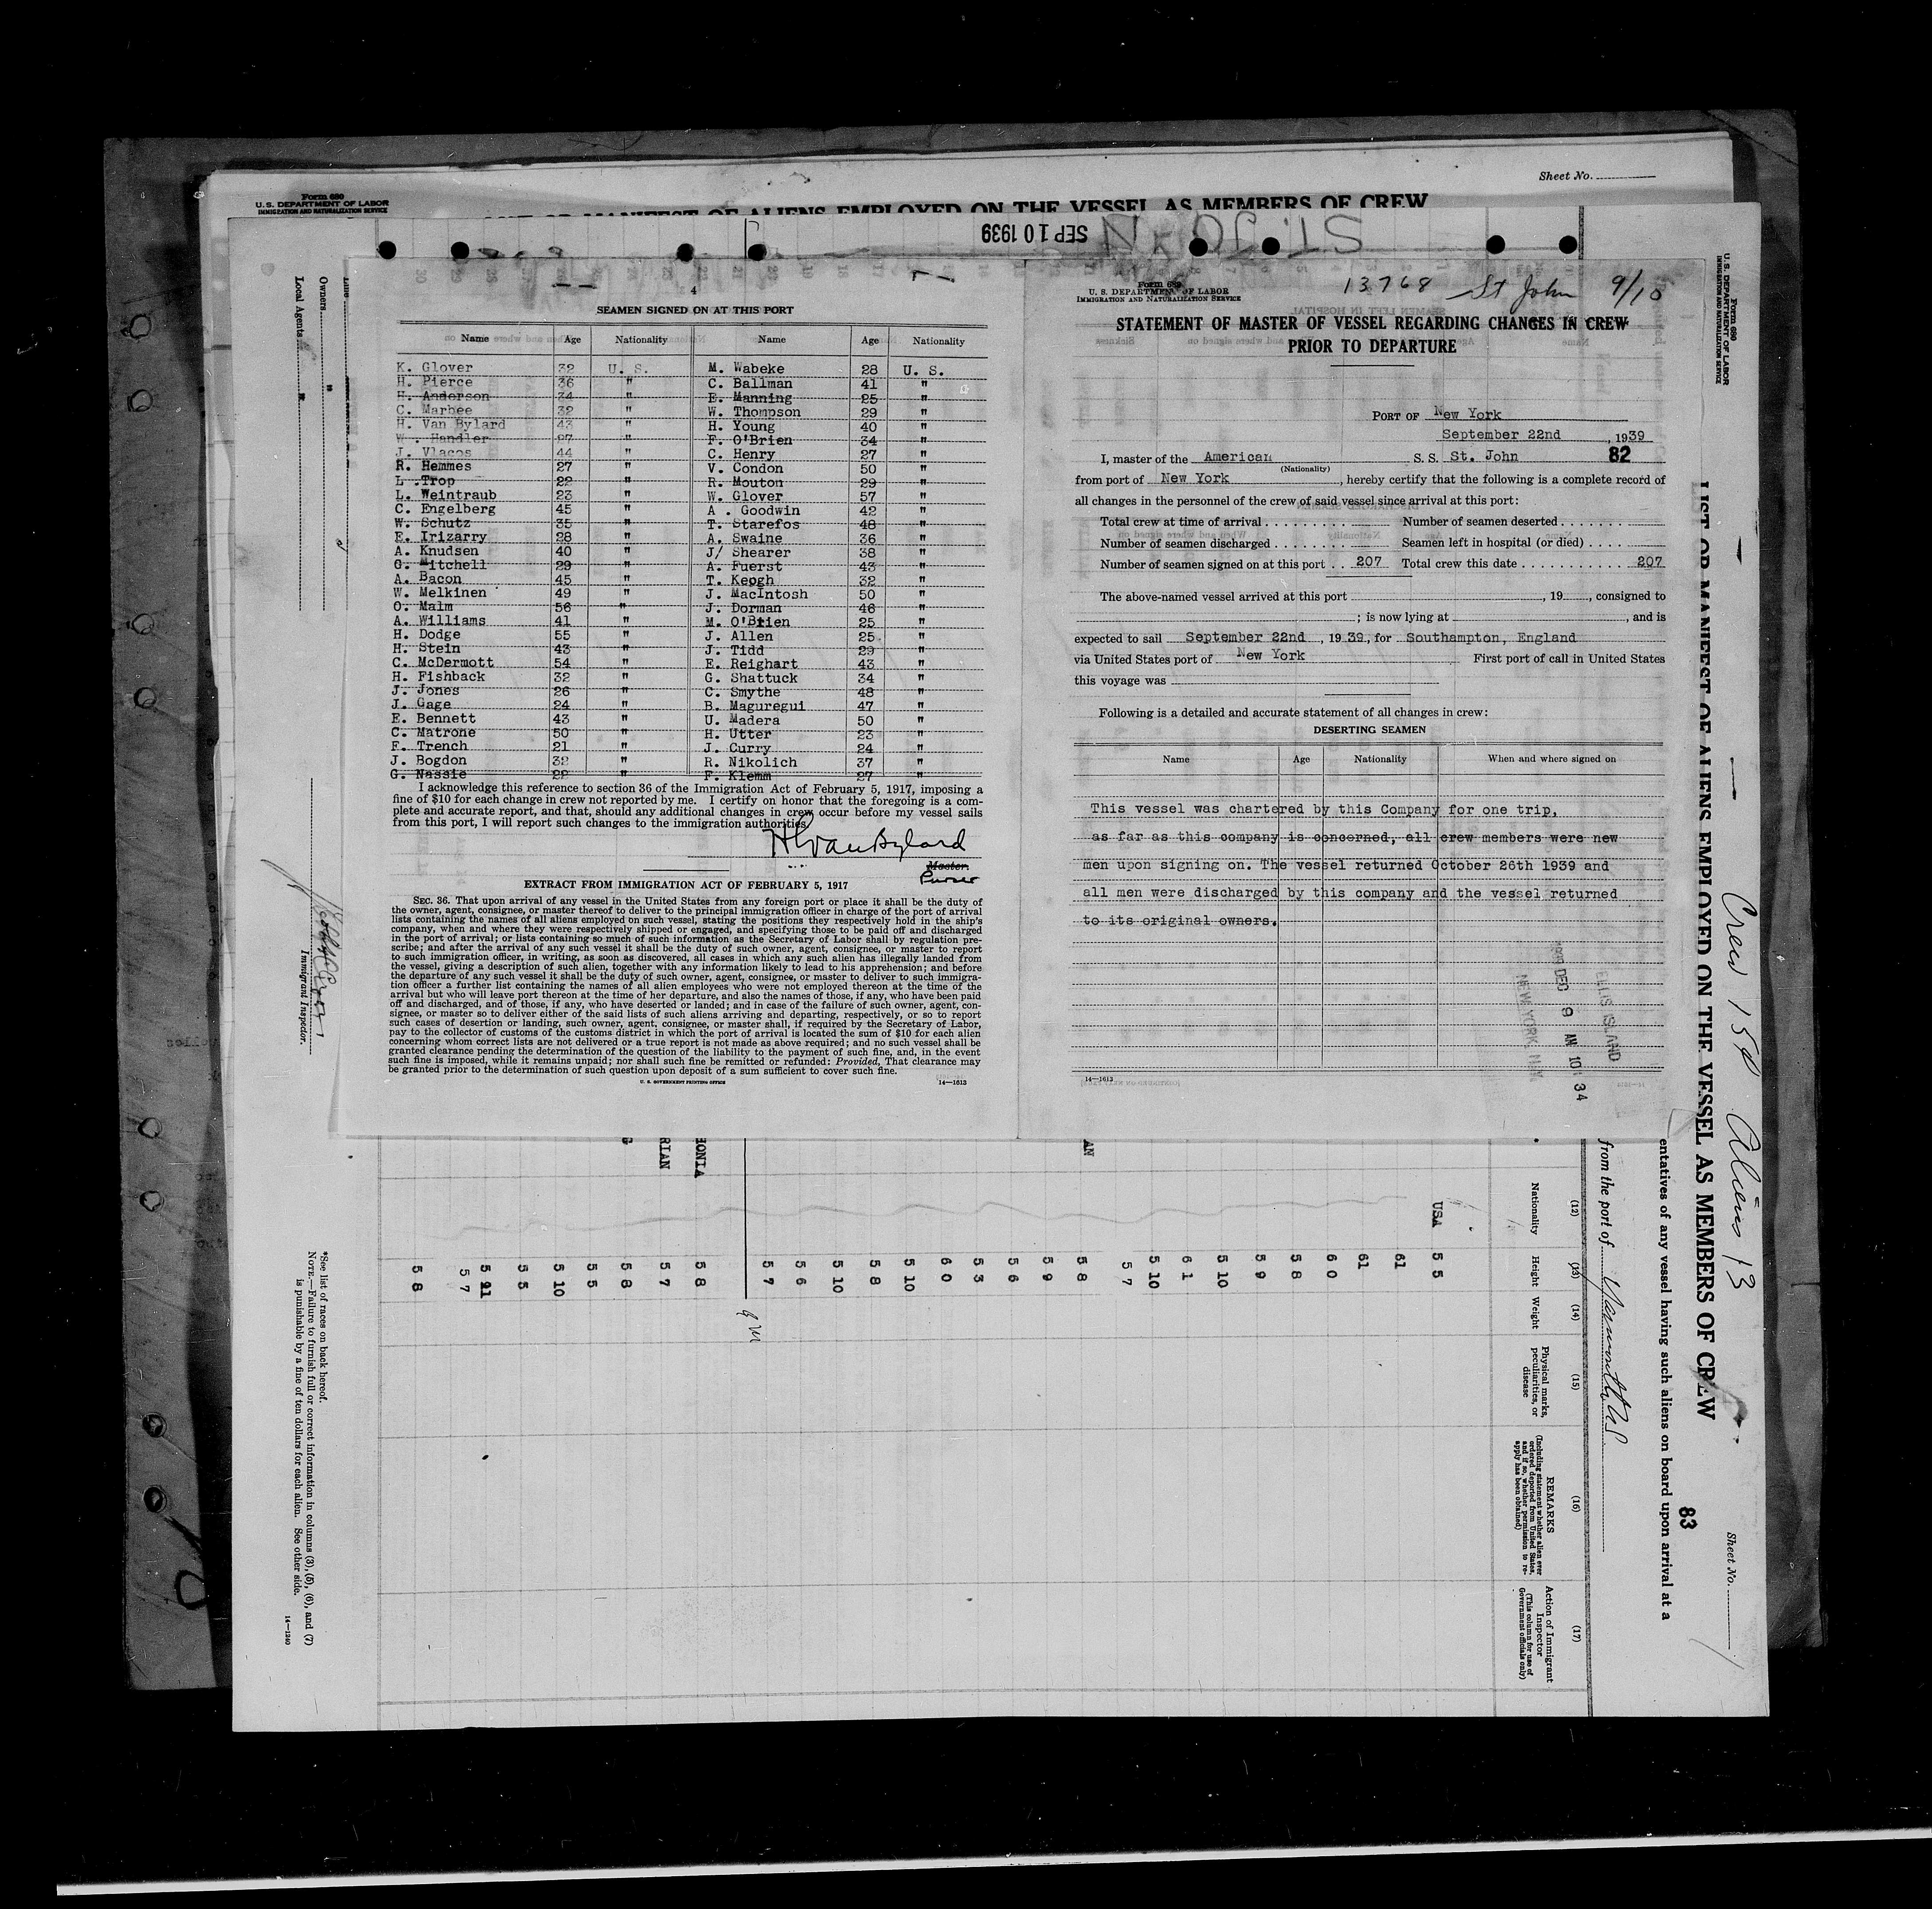 Sheet No.
Form 680
U.S. DEPARTMENT OF LABOR
IMMIGRATION AND NATURALIZATION SERVICE
LIST OR MANIFEST OF ALIENS EMPLOYED ON THE VESSEL AS MEMBERS OF CREW
SEP 10 1939
ST. JOHN
4
SEAMEN SIGNED ON AT THIS PORT
Name Age Nationality Name Age Nationality
K. Glover 32 U. S. M. Wabeke 28 U. S.
H. Pierce 36 " C. Ballman 41 "
H. Anderson 34 " E. Manning 25 "
C. Marbee 32 " W. Thompson 29 "
H. Van Bylard 43 " H. Young 40 "
W . Handler 27 " F. O'Brien 34 "
J. Vlacos 44 " C. Henry 27 "
R. Hemmes 27 " V. Condon 50 "
L .Trop 22 " R. Mouton 29 "
L. Weintraub 23 " W. Glover 57 "
C. Engelberg 45 " A . Goodwin 42 "
W. Schutz 35 " T. Starefos 48 "
E. Irizarry 28 " A. Swaine 36 "
A. Knudsen 40 " J/ Shearer 38 "
G. Mitchell 29 " A. Fuerst 43 "
A. Bacon 45 " T. Keogh 32 "
W. Melkinen 49 " J. MacIntosh 50 "
O. Malm 56 " J. Dorman 46 "
A. Williams 41 " M. O'Brien 25 "
H. Dodge 55 " J. Allen 25 "
H. Stein 43 " J. Tidd 29 "
C. McDermott 54 " E. Reighart 43 "
H. Fishback 32 " G. Shattuck 34 "
J. Jones 26 " C. Smythe 48 "
J. Gage 24 " B. Maguregui 47 "
E. Bennett 43 " U. Madera 50 "
C. Matrone 50 " H. Utter 23 "
F. Trench 21 " J. Curry 24 "
J. Bogdon 32 " R. Nikolich 37 "
G. Nassie 22 " F. Klemm 27 "
I acknowledge this reference to section 36 of the Immigration Act of February 5, 1917, imposing a
fine of $10 for each change in crew not reported by me. I certify on honor that the foregoing is a com-
plete and accurate report, and that, should any additional changes in crew occur before my vessel sails
from this port, I will report such changes to the immigration authorities.
H VanBylard
Master.
Purser
EXTRACT FROM IMMIGRATION ACT OF FEBRUARY 5, 1917
SEC. 36. That upon arrival of any vessel in the United States from any foreign port or place it shall be the duty of
the owner, agent, consignee, or master thereof to deliver to the principal immigration officer in charge of the port of arrival
lists containing the names of all aliens employed on such vessel, stating the positions they respectively hold in the ship's
company, when and where they were respectively shipped or engaged, and specifying those to be paid off and discharged
in the port of arrival; or lists containing so much of such information as the Secretary of Labor shall by regulation pre-
scribe; and after the arrival of any such vessel it shall be the duty of such owner, agent, consignee, or master to report
to such immigration officer, in writing, as soon as discovered, all cases in which any such alien has illegally landed from
the vessel, giving a description of such alien, together with any information likely to lead to his apprehension; and before
the departure of any such vessel it shall be the duty of such owner, agent, consignee, or master to deliver to such immigra-
tion officer a further list containing the names of all alien employees who were not employed thereon at the time of the
arrival but who will leave port thereon at the time of her departure, and also the names of those, if any, who have been paid
off and discharged, and of those, if any, who have deserted or landed; and in case of the failure of such owner, agent, con-
signee, or master so to deliver either of the said lists of such aliens arriving and departing, respectively, or so to report
such cases of desertion or landing, such owner, agent, consignee, or master shall, if required by the Secretary of Labor,
pay to the collector of customs of the customs district in which the port of arrival is located the sum of $10 for each alien
concerning whom correct lists are not delivered or a true report is not made as above required; and no such vessel shall be
granted clearance pending the determination of the question of the liability to the payment of such fine, and, in the event
such fine is imposed, while it remains unpaid; nor shall such fine be remitted or refunded: Provided, That clearance may
be granted prior to the determination of such question upon deposit of a sum sufficient to cover such fine.
U. S. GOVERNMENT PRINTING OFFICE
14—1613
Form 689
U. S. DEPARTMENT OF LABOR
IMMIGRATION AND NATURALIZATION SERVICE
13768 St John 9/10
STATEMENT OF MASTER OF VESSEL REGARDING CHANGES IN CREW
PRIOR TO DEPARTURE
PORT OF New York
September 22nd, 1939
I, master of the American S. S. St. John 82
(Nationality)
from port of New York, hereby certify that the following is a complete record of
all changes in the personnel of the crew of said vessel since arrival at this port:
Total crew at time of arrival Number of seamen deserted
Number of seamen discharged Seamen left in hospital (or died)
Number of seamen signed on at this port 207 Total crew this date 207
The above-named vessel arrived at this port , 19 , consigned to
; is now lying at , and is
expected to sail September 22nd, 1939, for Southampton, England
via United States port of New York First port of call in United States
this voyage was
Following is a detailed and accurate statement of all changes in crew:
DESERTING SEAMEN
Name Age Nationality When and where signed on
This vessel was chartered by this Company for one trip,
as far as this company is concerned, all crew members were new
men upon signing on. The vessel returned October 26th 1939 and
all men were discharged by this company and the vessel returned
to its original owners.
1939 DEC 9 AM 10 34
ELLIS ISLAND
NEW YORK
14—1613
Form 680
U. S. DEPARTMENT OF LABOR
IMMIGRATION AND NATURALIZATION SERVICE
LIST OR MANIFEST OF ALIENS EMPLOYED ON THE VESSEL AS MEMBERS OF CREW
Crew 158 Aliens 13
83
Sheet No.
entatives of any vessel having such aliens on board upon arrival at a
from the port of Yarmouth NS
(12) (13) (14) (15) (16) (17)
Nationality
Height
Weight
Physical marks, peculiarities, or disease
REMARKS
(Including statement whether alien ever ordered deported from United States, and if so, whether permission to re-apply has been obtained)
Action of Immigrant Inspector
(This column for use of Government officials only)
USA 5 5
61
61
6 0
5 8
5 9
5 10
6 1
5 10
5 7
AN 5 8
5 9
5 6
5 3
6 0
5 10
5 8
5 10
5 6
5 7
HONIA 5 8
RIAN 5 7
5 8
5 5
5 10
5 5
5 7
5 8
Owners
Local Agents
Immigrant Inspector.
*See list of races on back hereof.
NOTE.—Failure to furnish full or correct information in columns (3), (5), (6), and (7)
is punishable by a fine of ten dollars for each alien. See other side.
14—1240